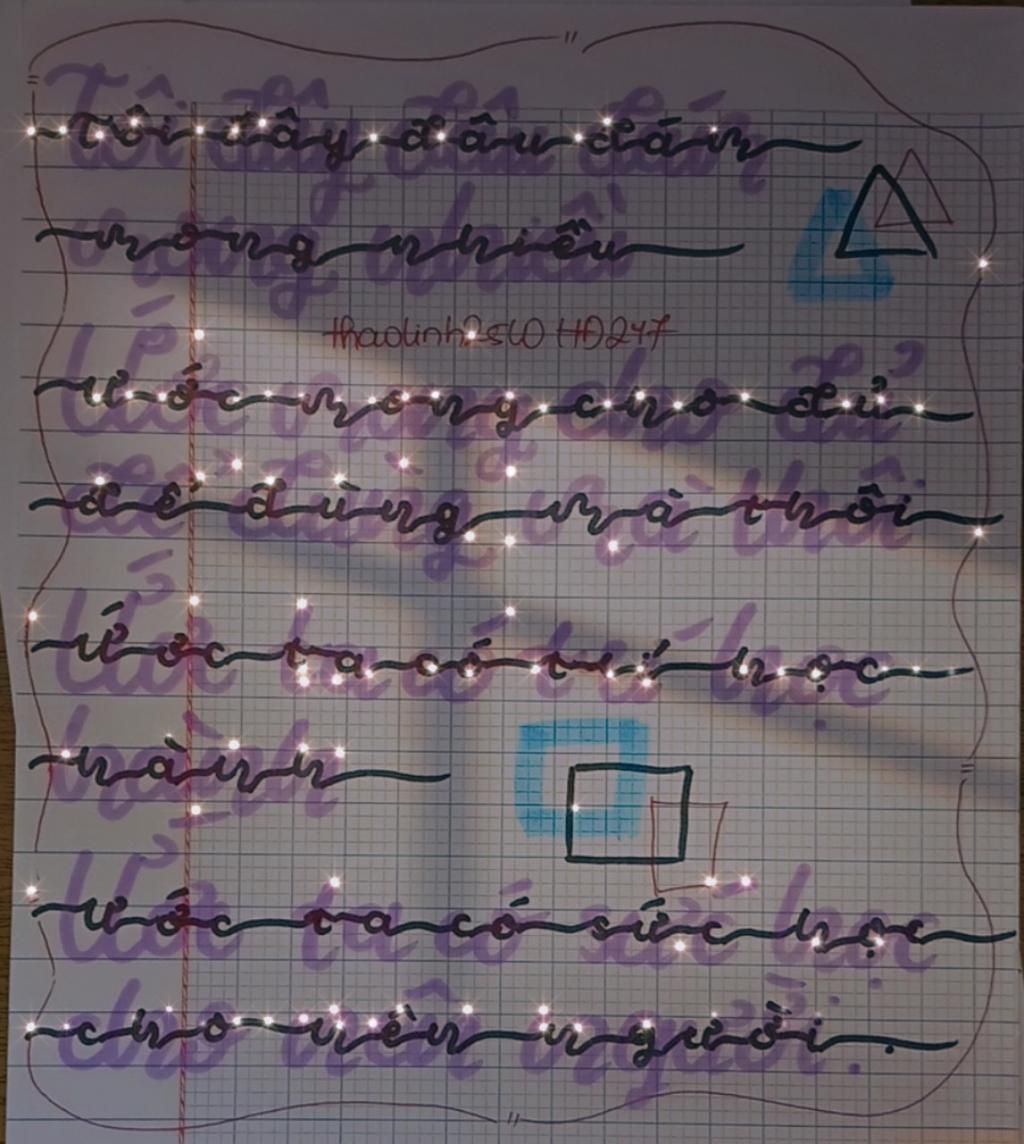 Tôi đây đâu dám
mong nhiều
thaolinh2slOHĐ247
Ước mong cho đủ
để dùng mà thôi
Ước ta có trí học
hành
Ước ta có sức học
cho nên người.